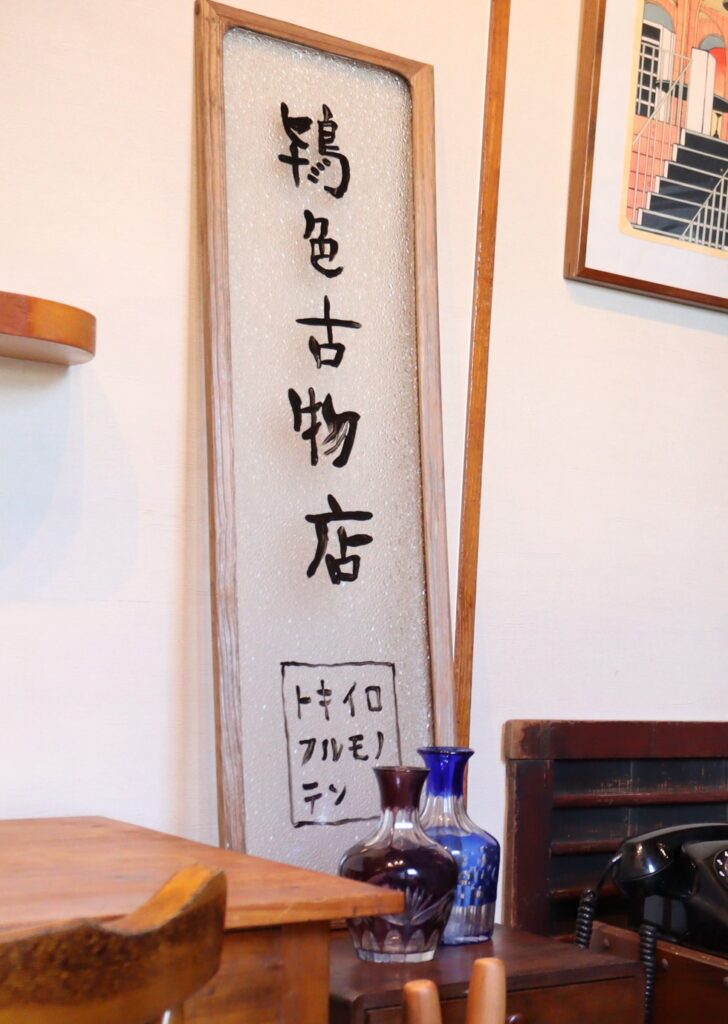 鴇色古物店
トキイロ
フルモノ
テン